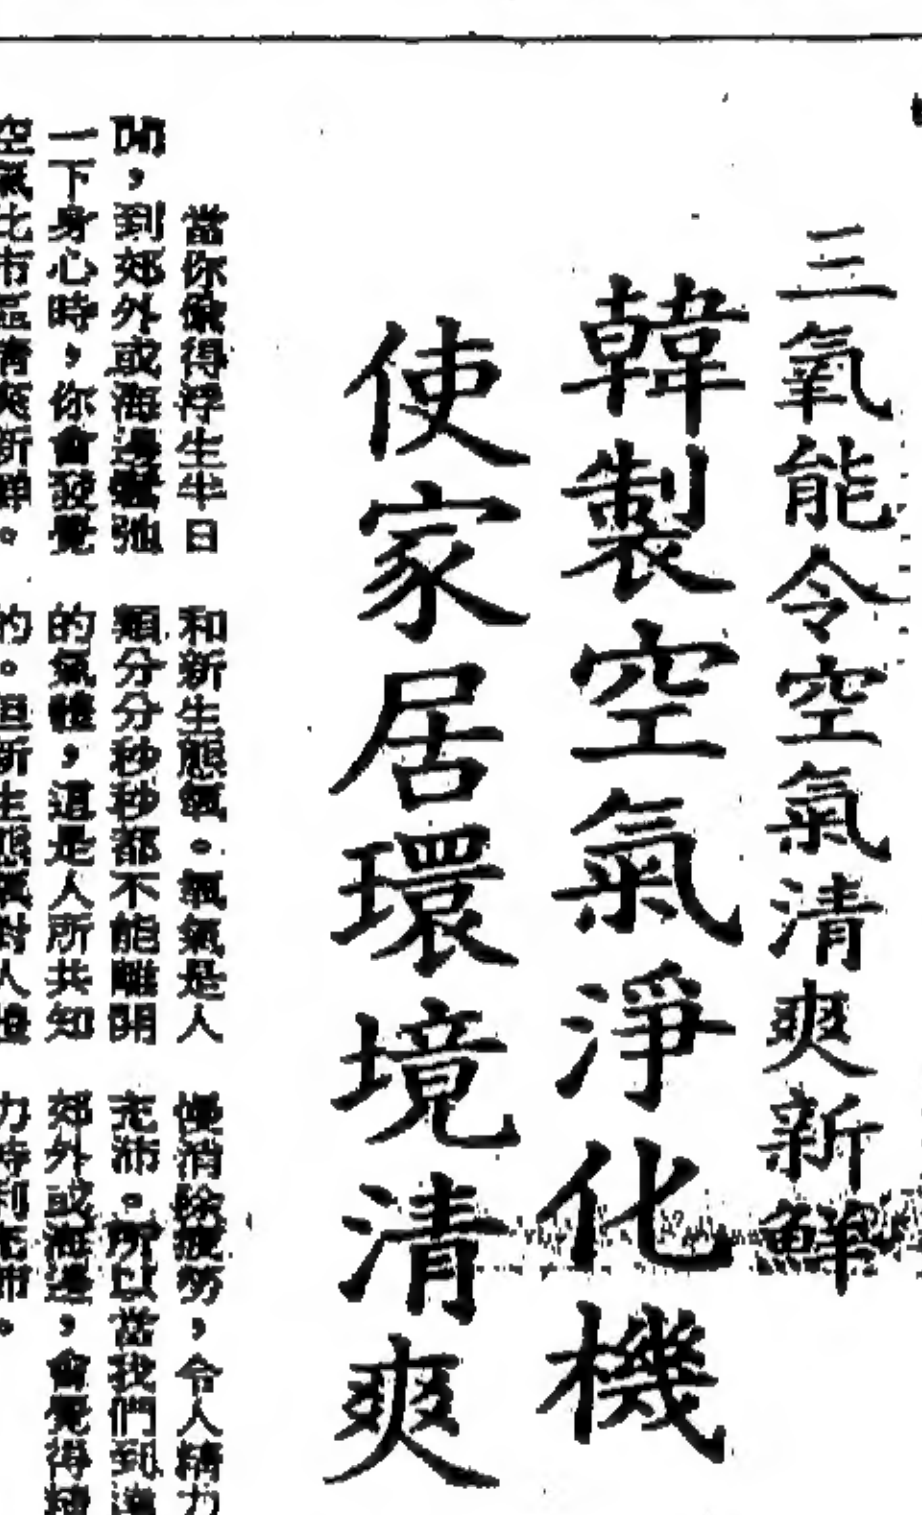 三氧能令空氣清爽新鮮
韓製空氣淨化機
使家居環境清爽
當你偷得浮生半日
閒，到郊外或海邊鬆弛
一下身心時，你會發覺
空氣比市區清爽新鮮。
和新生態氧。氧氣是人
類分分秒秒都不能離開
的氣體，這是人所共知
的。但新生態氧對人體
慢消除疲勞，令人精力
充沛。所以當我們到
郊外或海邊，會覺得精
力特別充沛。